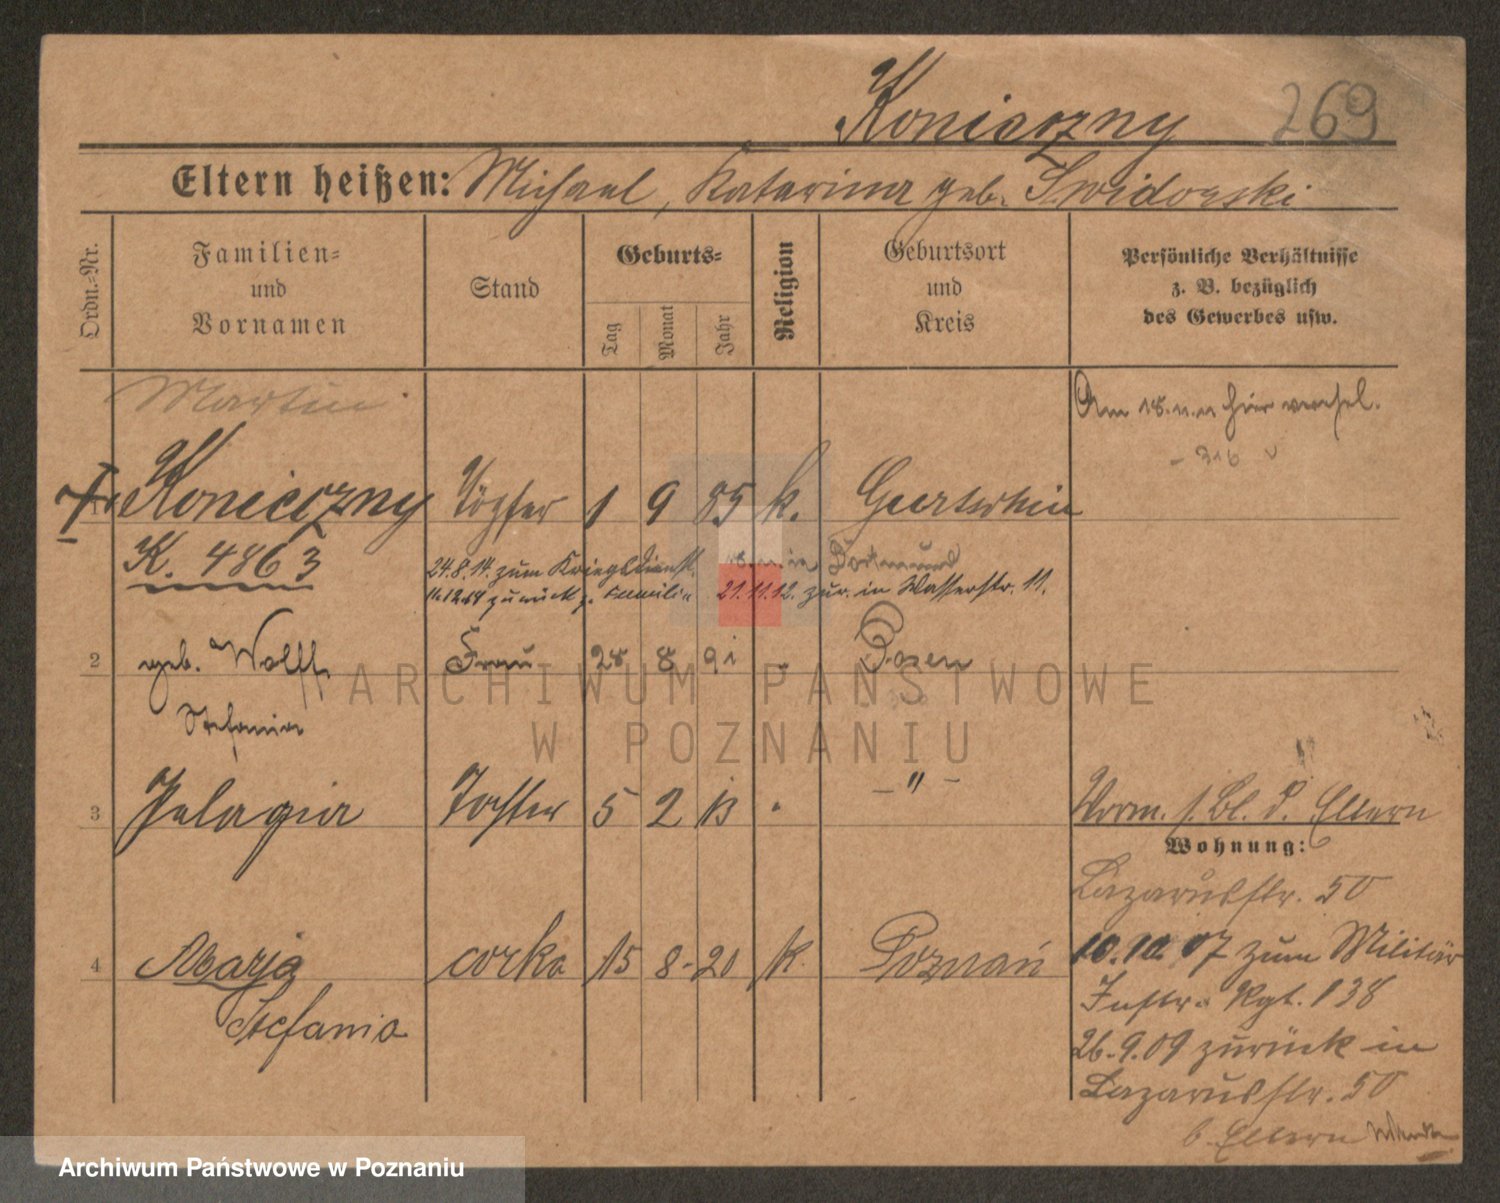 Konieczny 269
Eltern heißen: Michael, Katarina geb. Swidorski
Ordn.-Nr.
Familien-
und
Vornamen
Stand
Geburts-
Tag
Monat
Jahr
Religion
Geburtsort
und
Kreis
Persönliche Verhältnisse
z. B. bezüglich
des Gewerbes usw.
Martin
Am 18.11.11 hier verehel.
- 316
1 Konieczny Töpfer 1 9 85 k.
K. 4863
24.8.14. zum Kriegsdienst. in Dortmund
11.12.14 zurück z. Familie 21.11.12. zur. in Wasserstr. 11.
2 geb. Wolff Frau 28 8 91 " Posen
Stefania
3 Pelagia Tochter 5 2 13 " - " -
Worm. s. Bl. d. Eltern
Wohnung:
Lazarusstr. 50
4 Marja córka 15 8 - 20 k. Poznań
Stefania
10.10.07 zum Militär
Inftr. Rgt. 138
26.9.09 zurück in
Lazarusstr. 50
b. Eltern
ARCHIWUM PAŃSTWOWE
W POZNANIU
Archiwum Państwowe w Poznaniu